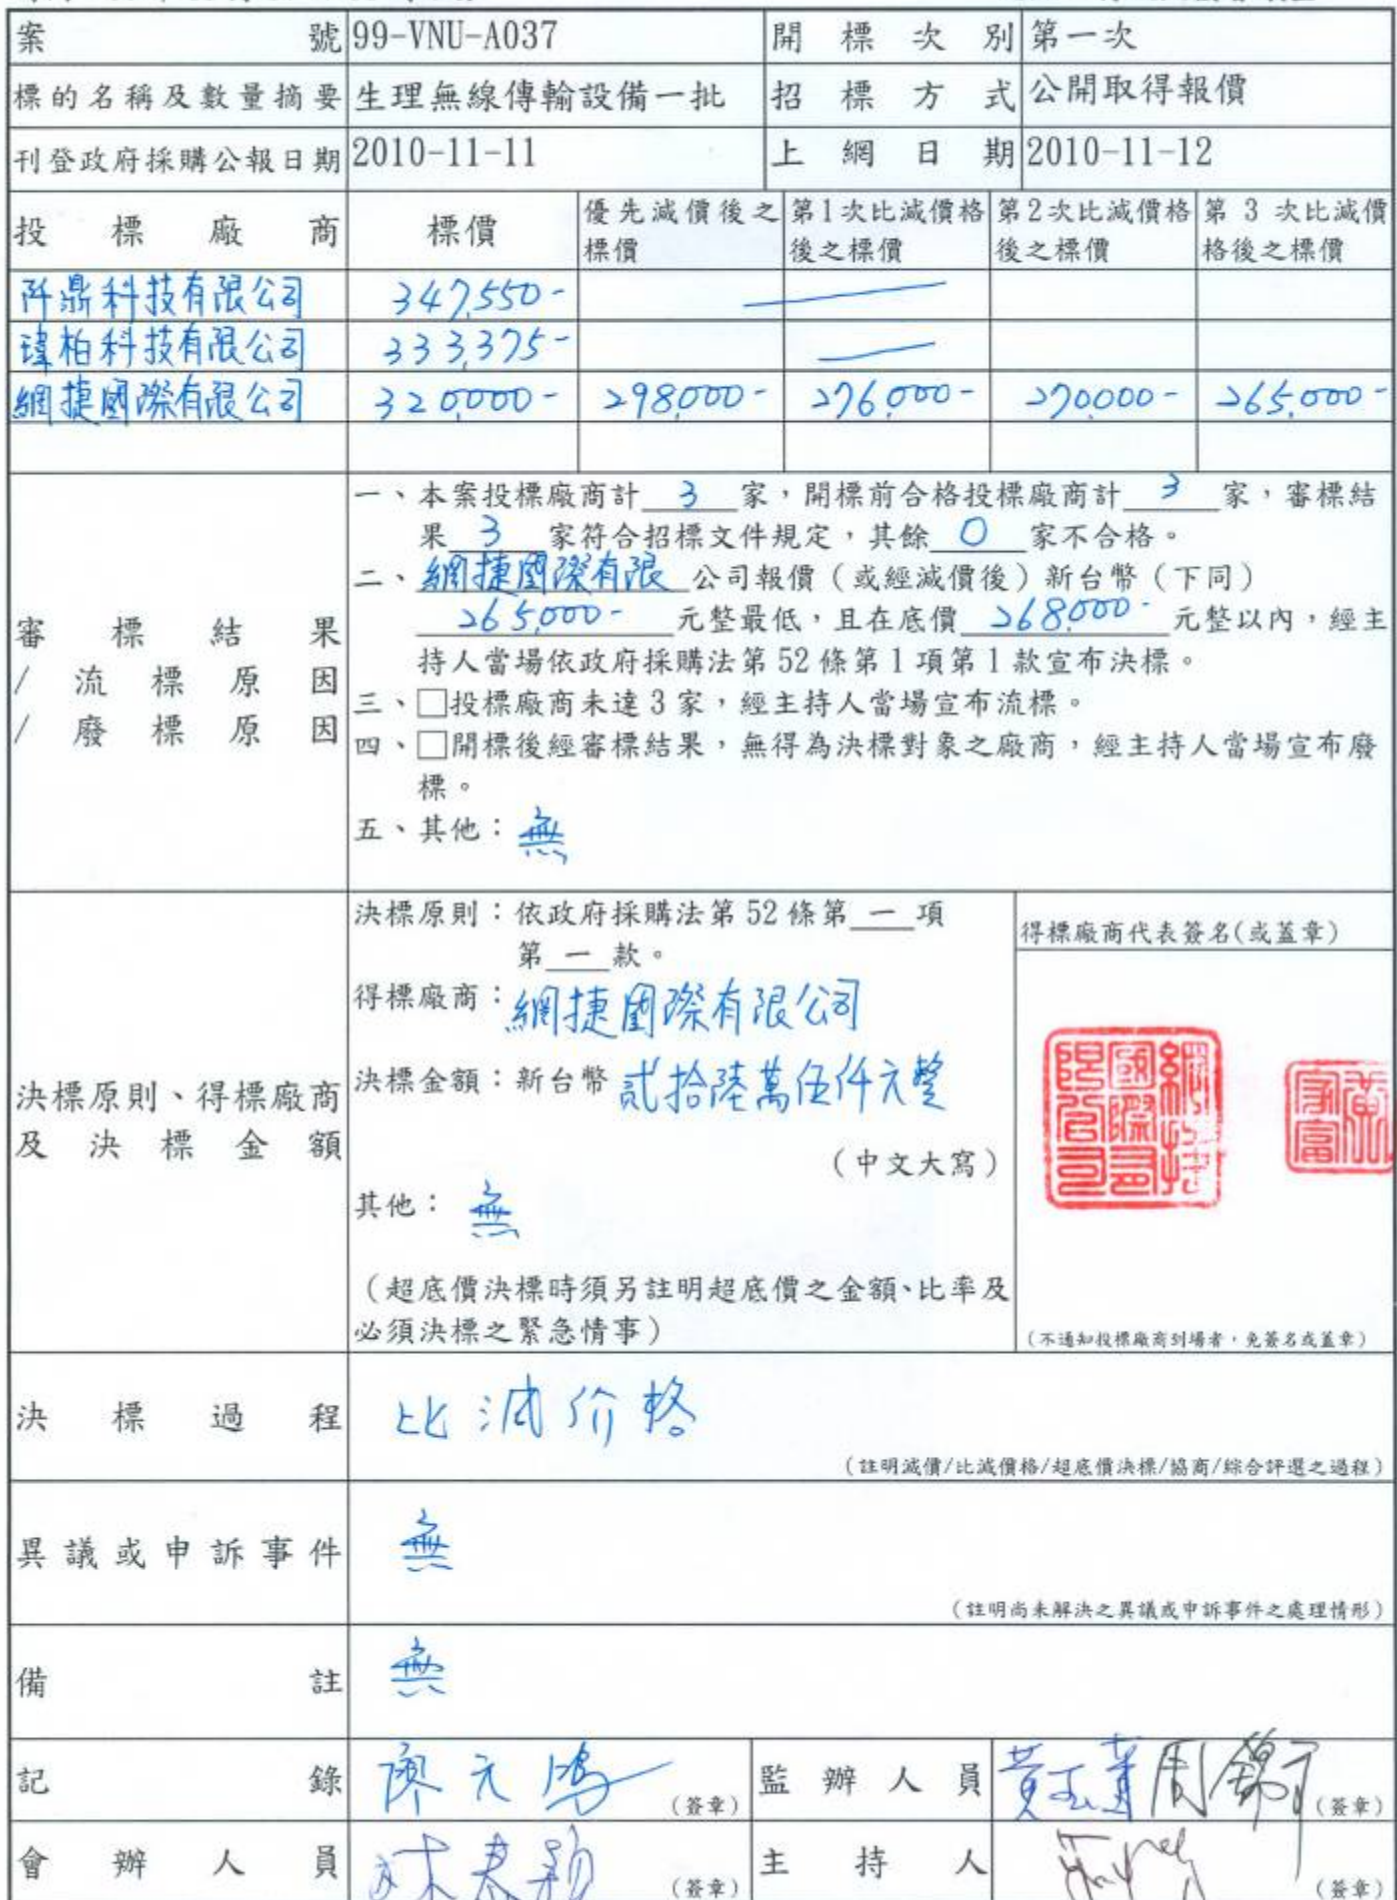 案號 99-VNU-A037 開標次別 第一次
標的名稱及數量摘要 生理無線傳輸設備一批 招標方式 公開取得報價
刊登政府採購公報日期 2010-11-11 上網日期 2010-11-12
投標廠商 標價 優先減價後之標價 第1次比減價格後之標價 第2次比減價格後之標價 第3次比減價格後之標價
鼎科技有限公司 347,550-
瑋柏科技有限公司 333,375-
網捷國際有限公司 320,000- 298,000- 276,000- 270,000- 265,000-
審標結果
/流標原因
/廢標原因
一、本案投標廠商計 3 家，開標前合格投標廠商計 3 家，審標結
果 3 家符合招標文件規定，其餘 0 家不合格。
二、網捷國際有限 公司報價（或經減價後）新台幣（下同）
265,000- 元整最低，且在底價 268,000- 元整以內，經主
持人當場依政府採購法第52條第1項第1款宣布決標。
三、□投標廠商未達3家，經主持人當場宣布流標。
四、□開標後經審標結果，無得為決標對象之廠商，經主持人當場宣布廢
標。
五、其他：無
決標原則、得標廠商
及決標金額
決標原則：依政府採購法第52條第 一 項
第 一 款。
得標廠商：網捷國際有限公司
決標金額：新台幣 貳拾陸萬伍仟元整
（中文大寫）
其他：無
（超底價決標時須另註明超底價之金額、比率及
必須決標之緊急情事）
得標廠商代表簽名(或蓋章)
網捷
國際有
限公司
黃
家富
（不通知投標廠商到場者，免簽名或蓋章）
決標過程 比減价格
（註明減價/比減價格/超底價決標/協商/綜合評選之過程）
異議或申訴事件 無
（註明尚未解決之異議或申訴事件之處理情形）
備註 無
記錄 廖元鴻 （簽章） 監辦人員 黃 周錦 （簽章）
會辦人員 林 （簽章） 主持人 （簽章）